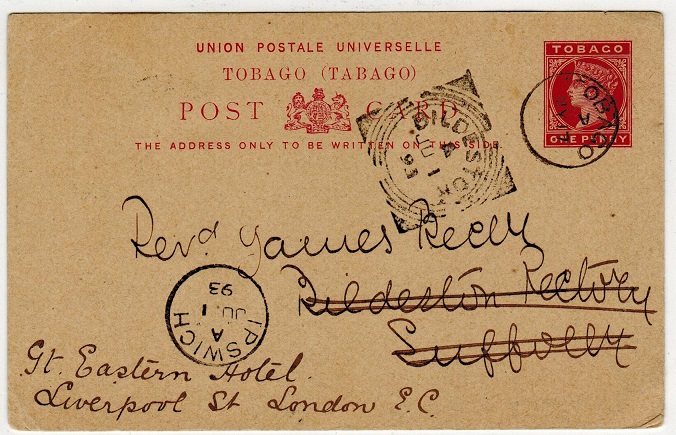 UNION POSTALE UNIVERSELLE
TOBAGO (TABAGO)
POST CARD
THE ADDRESS ONLY TO BE WRITTEN ON THIS SIDE.
TOBAGO
ONE PENNY
TOBAGO
A
BILDESTON
JU 1
93
Revd James Beck
Bildeston Rectory
Suffolk
IPSWICH
A
JU 1
93
Gt. Eastern Hotel
Liverpool St London E.C.